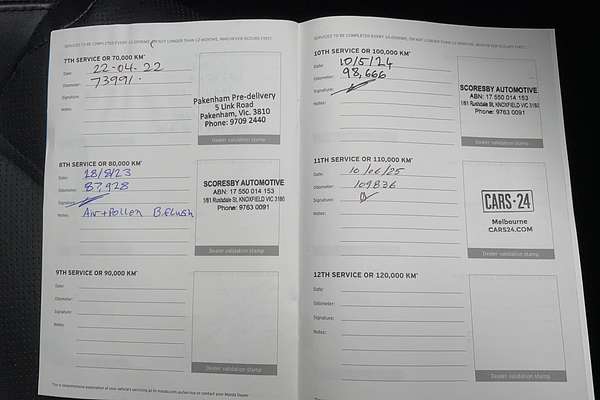 SERVICES TO BE COMPLETED EVERY 10,000KM, OR NOT LONGER THAN 12 MONTHS, WHICHEVER OCCURS FIRST.
7TH SERVICE OR 70,000 KM*
Date: 22-04-22
Odometer: 73991.
Signature:
Notes:
Pakenham Pre-delivery
5 Link Road
Pakenham, Vic. 3810
Phone: 9709 2440
Dealer validation stamp
8TH SERVICE OR 80,000 KM*
Date: 18/8/23
Odometer: 87,928
Signature:
Notes: Air + Pollen B.flush
SCORESBY AUTOMOTIVE
ABN: 17 550 014 153
1/81 Rushdale St, KNOXFIELD VIC 3180
Phone: 9763 0091
Dealer validation stamp
9TH SERVICE OR 90,000 KM*
Date:
Odometer:
Signature:
Notes:
Dealer validation stamp
10TH SERVICE OR 100,000 KM*
Date: 10/5/24
Odometer: 98,666
Signature:
Notes:
SCORESBY AUTOMOTIVE
ABN: 17 550 014 153
1/81 Rushdale St, KNOXFIELD VIC 3180
Phone: 9763 0091
Dealer validation stamp
11TH SERVICE OR 110,000 KM*
Date: 10/06/25
Odometer: 109836
Signature:
Notes:
CARS·24
Melbourne
CARS24.COM
Dealer validation stamp
12TH SERVICE OR 120,000 KM*
Date:
Odometer:
Signature:
Notes:
Dealer validation stamp